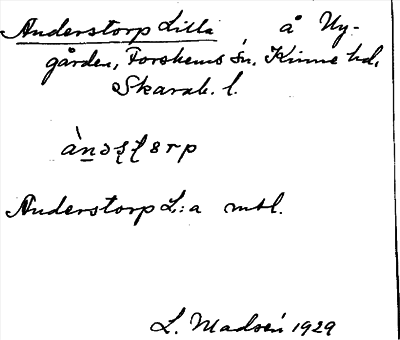 Anderstorp Lilla, å Ny-
gården, Forshems sn. Kinne hd,
Skarab. l.
Anderstorp L:a mtl.
L. Madsén 1929